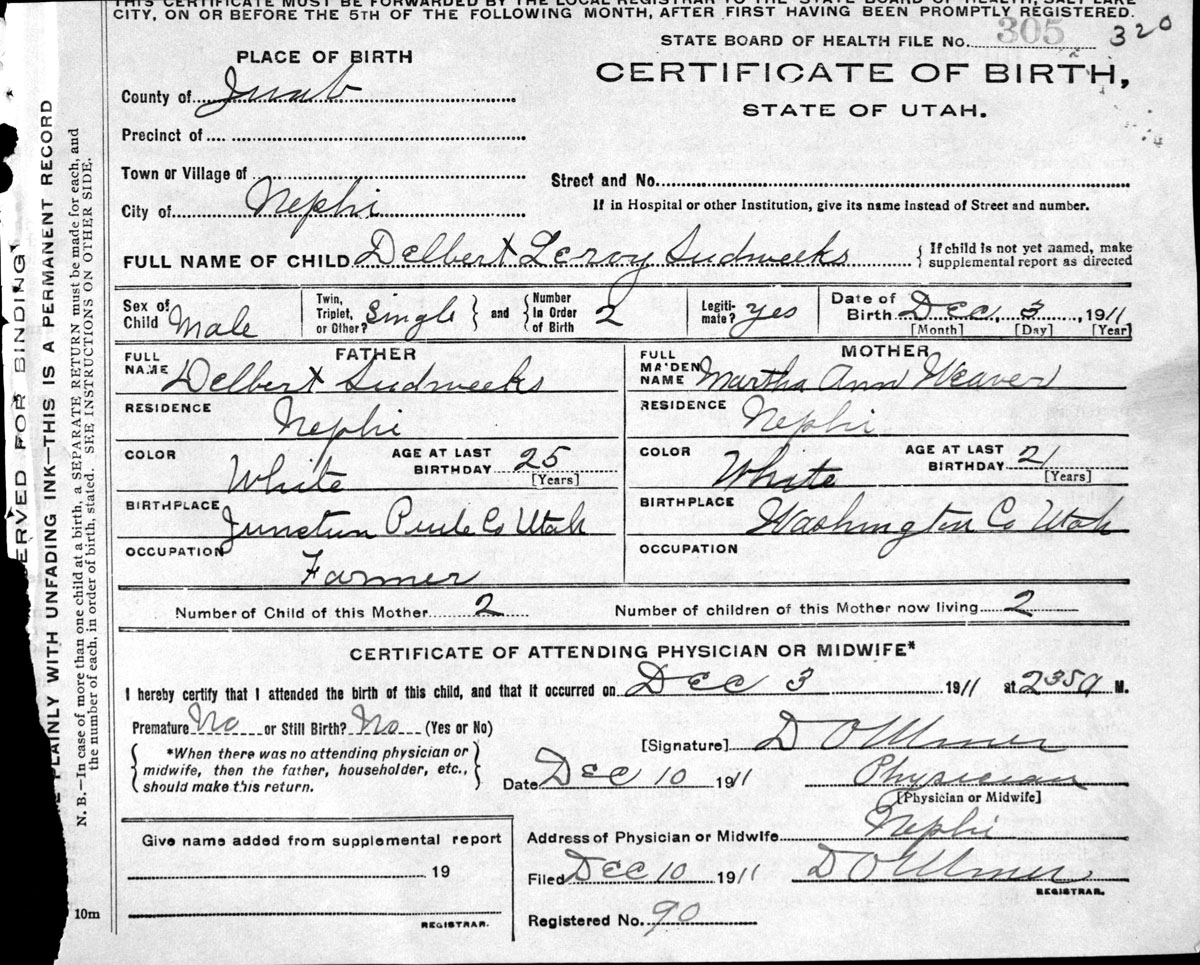 THIS CERTIFICATE MUST BE FORWARDED BY THE LOCAL REGISTRAR TO THE STATE BOARD OF HEALTH, SALT LAKE
CITY, ON OR BEFORE THE 5TH OF THE FOLLOWING MONTH, AFTER FIRST HAVING BEEN PROMPTLY REGISTERED.
STATE BOARD OF HEALTH FILE No. 305 320
PLACE OF BIRTH
CERTIFICATE OF BIRTH,
STATE OF UTAH.
County of Juab
Precinct of
Town or Village of
Street and No.
City of Nephi
If in Hospital or other Institution, give its name instead of Street and number.
FULL NAME OF CHILD Delbert Leroy Sudweeks { If child is not yet named, make supplemental report as directed
Sex of Child Male Twin, Triplet, or Other? Single } and { Number in Order of Birth 2 Legiti-mate? Yes Date of Birth Dec, 3, 1911
[Month] [Day] [Year]
FATHER MOTHER
FULL NAME Delbert Sudweeks FULL MAIDEN NAME Martha Ann Weaver
RESIDENCE Nephi RESIDENCE Nephi
COLOR White AGE AT LAST BIRTHDAY 25 [Years] COLOR White AGE AT LAST BIRTHDAY 21 [Years]
BIRTHPLACE Junction Piute Co Utah BIRTHPLACE Washington Co Utah
OCCUPATION Farmer OCCUPATION
Number of Child of this Mother 2 Number of children of this Mother now living 2
CERTIFICATE OF ATTENDING PHYSICIAN OR MIDWIFE*
I hereby certify that I attended the birth of this child, and that it occurred on Dec 3 1911 at 2 35 a M.
Premature No or Still Birth? No (Yes or No)
[Signature] D O
{ *When there was no attending physician or midwife, then the father, householder, etc., should make this return. }
Date Dec 10 1911 Physician
[Physician or Midwife]
Address of Physician or Midwife Nephi
Give name added from supplemental report
Filed Dec 10 1911 D O
19
REGISTRAR.
Registered No. 90
REGISTRAR.
10m
ERVED FOR BINDING
PLAINLY WITH UNFADING INK—THIS IS A PERMANENT RECORD
N. B.—In case of more than one child at a birth, a SEPARATE RETURN must be made for each, and
the number of each, in order of birth, stated. SEE INSTRUCTIONS ON OTHER SIDE.